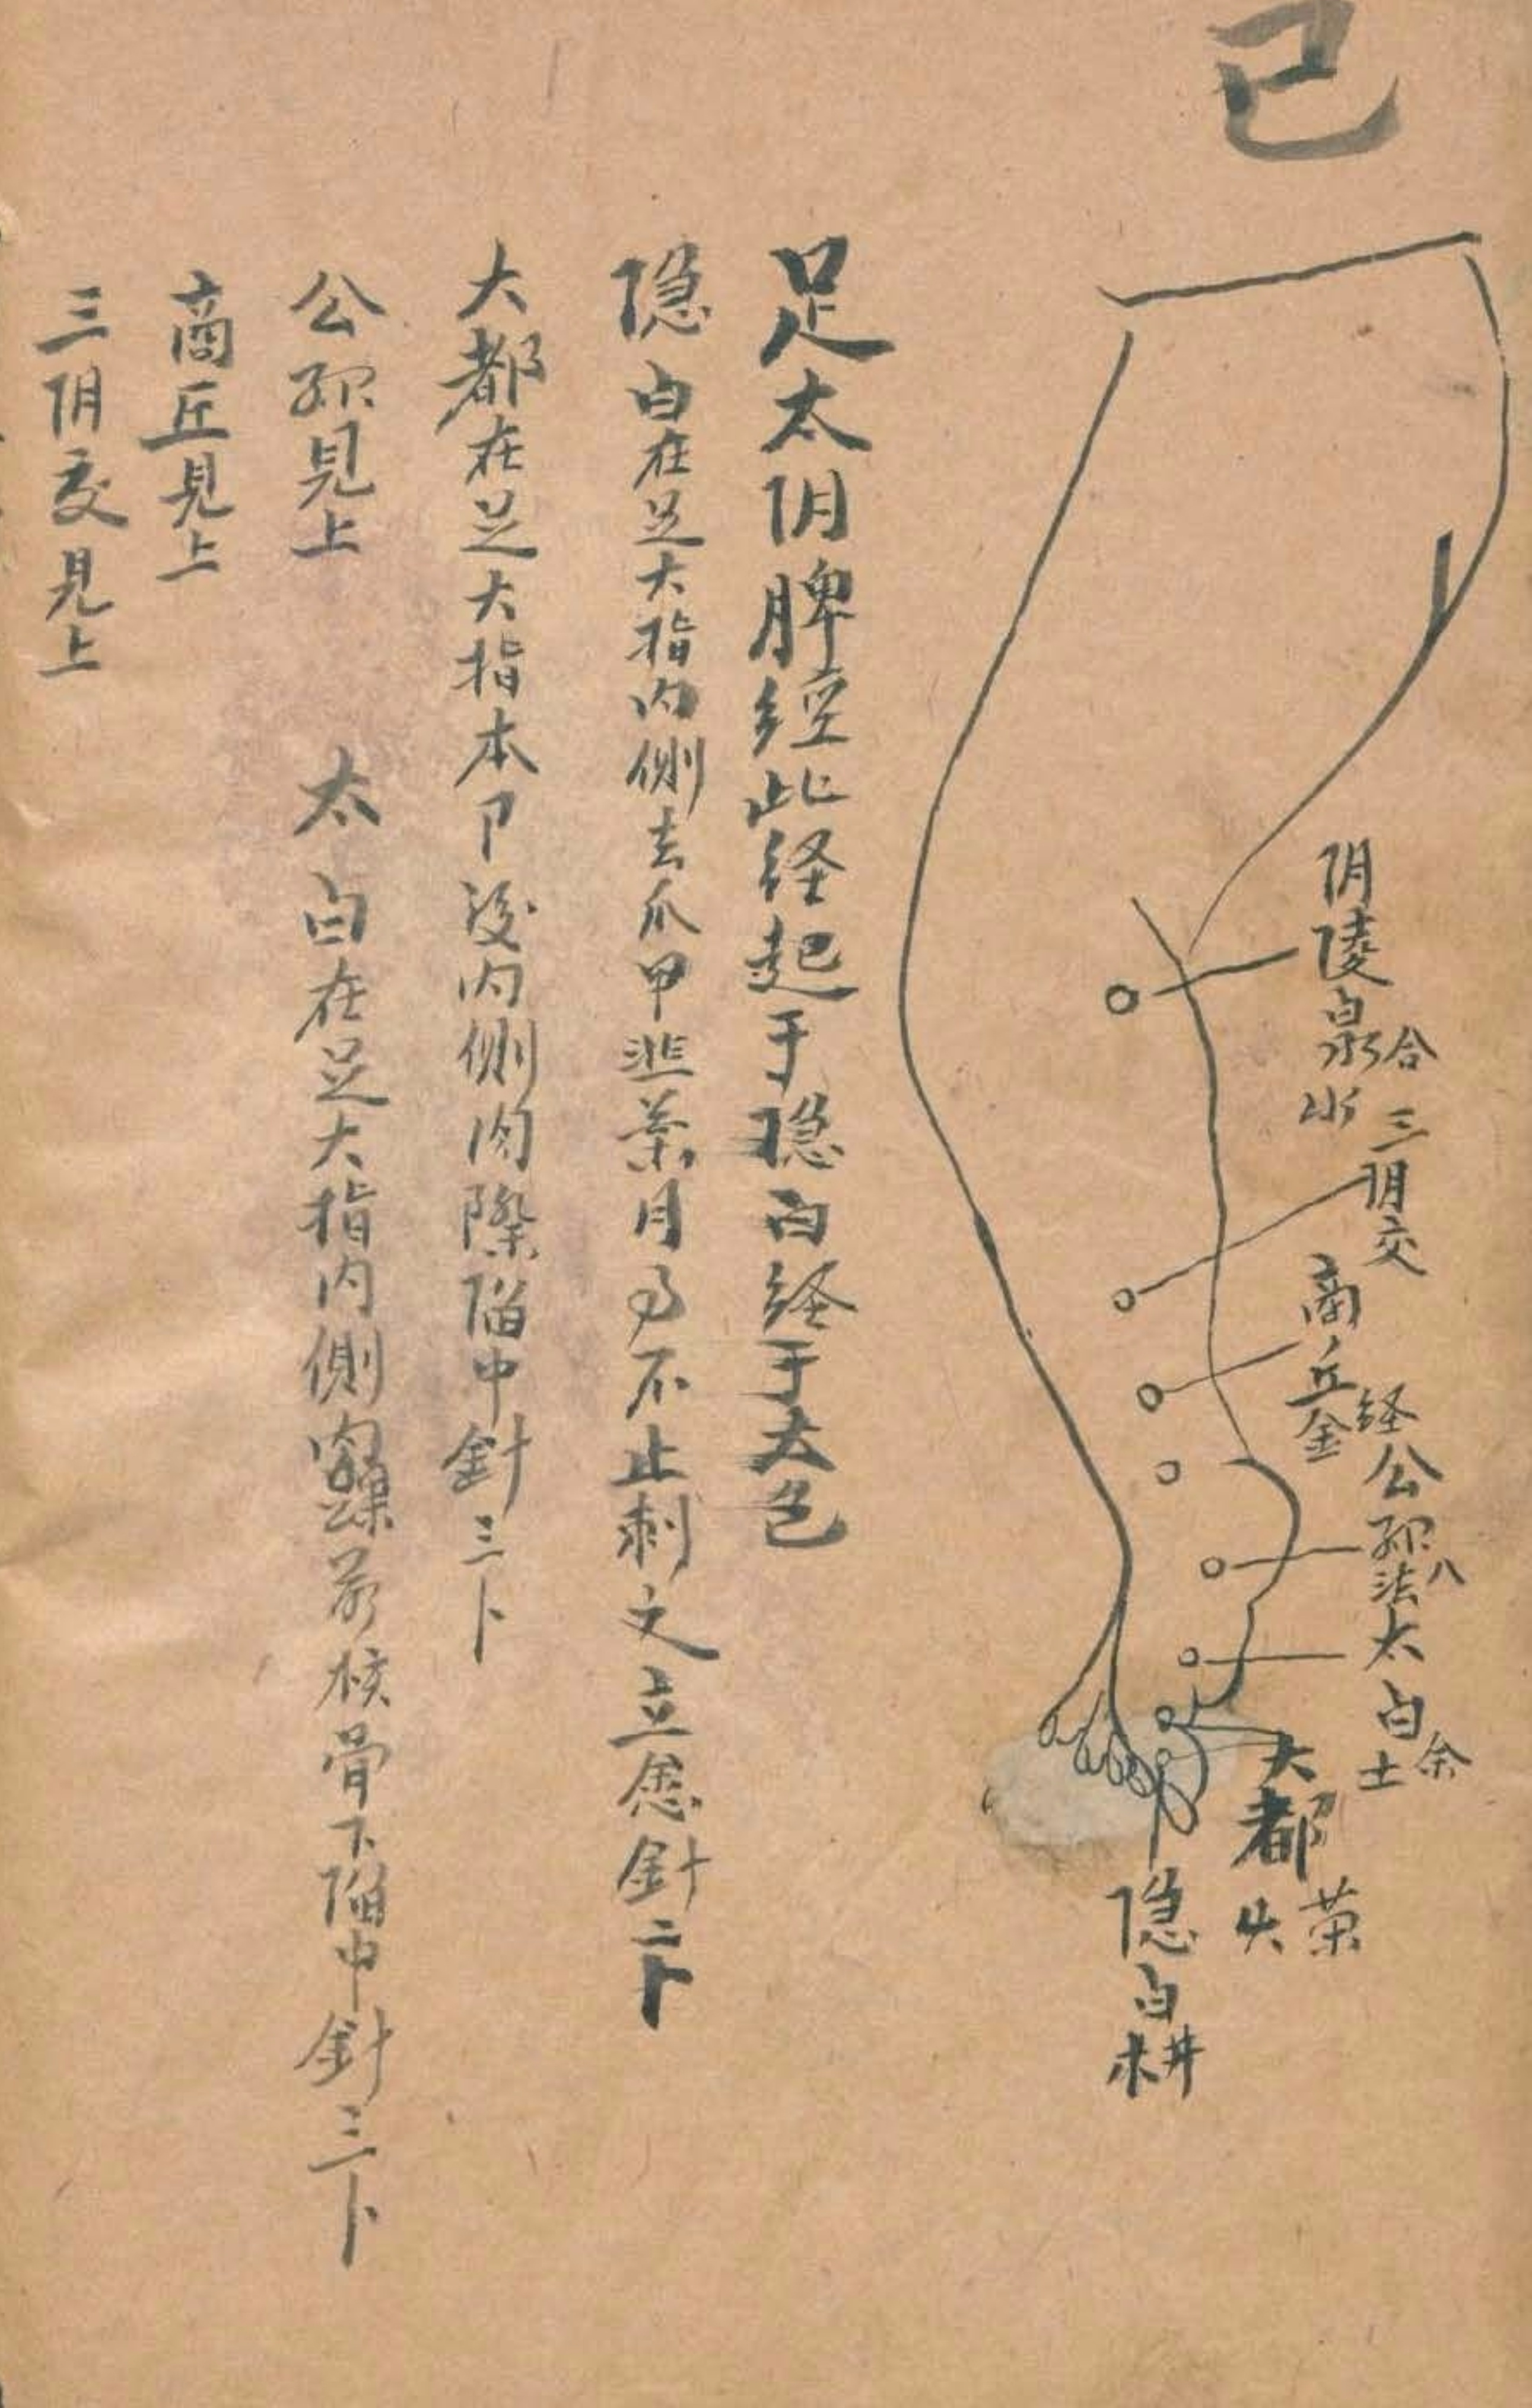 己
阴陵泉合
水
三阴交
商丘经
金
公孙八
法
太白余
土
大都荣
火
隐白井
木
足太阴脾经此経起于隐白経于大包
隐白在足大指内側去爪甲韭葉月不止刺之立愈針二卜
大都在足大指本卩後内側肉際陷中針三卜
公孙見上
太白在足大指内側内踝前核骨下陷中針三卜
商丘見上
三阴交見上